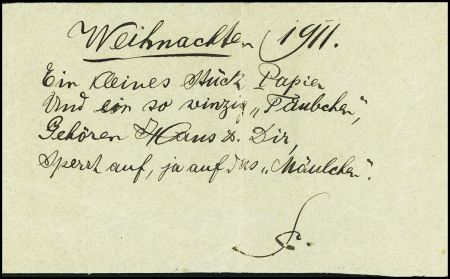 Weihnachten 1911.
Ein kleines Stück Papier
Und ein so winzig „Täubchen",
Gehören Hans & Dir,
Sperrt auf, ja auf das „Mäulchen".